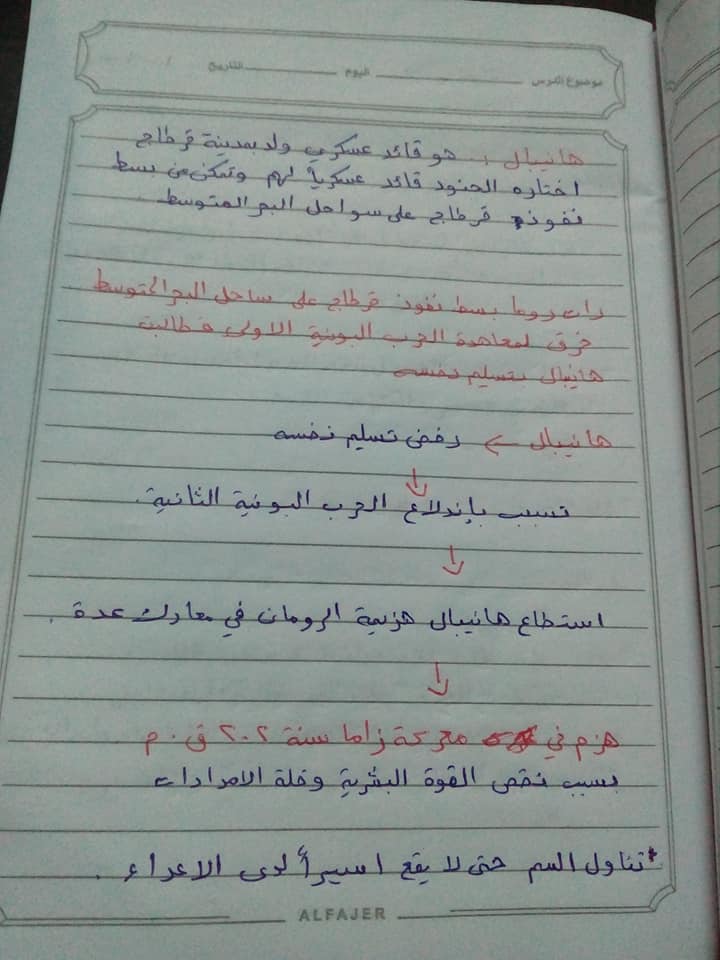 موضوع الدرس ـــــــــ اليوم ـــــــــ التاريخ / /
هانيبال : هو قائد عسكري ولد بمدينة قرطاج
اختاره الجنود قائد عسكرياً لهم وتمكن من بسط
نفوذ قرطاج على سواحل البحر المتوسط
رات روما بسط نفوذ قرطاج على ساحل البحر المتوسط
خرق لمعاهدة الحرب البونية الاولى فطالبت
هانيبال بتسليم نفسه
هانيبال ← رفض تسليم نفسه
↓
تسبب بإندلاع الحرب البونية الثانية.
↓
استطاع هانيبال هزيمة الرومان في معارك عدة .
↓
هزم في معركة زاما سنة ٢٠٢ ق . م
بسبب نقص القوة البشرية وقلة الامدادات
* تناول السم حتى لا يقع اسيراً لدى الاعداء .
ALFAJER